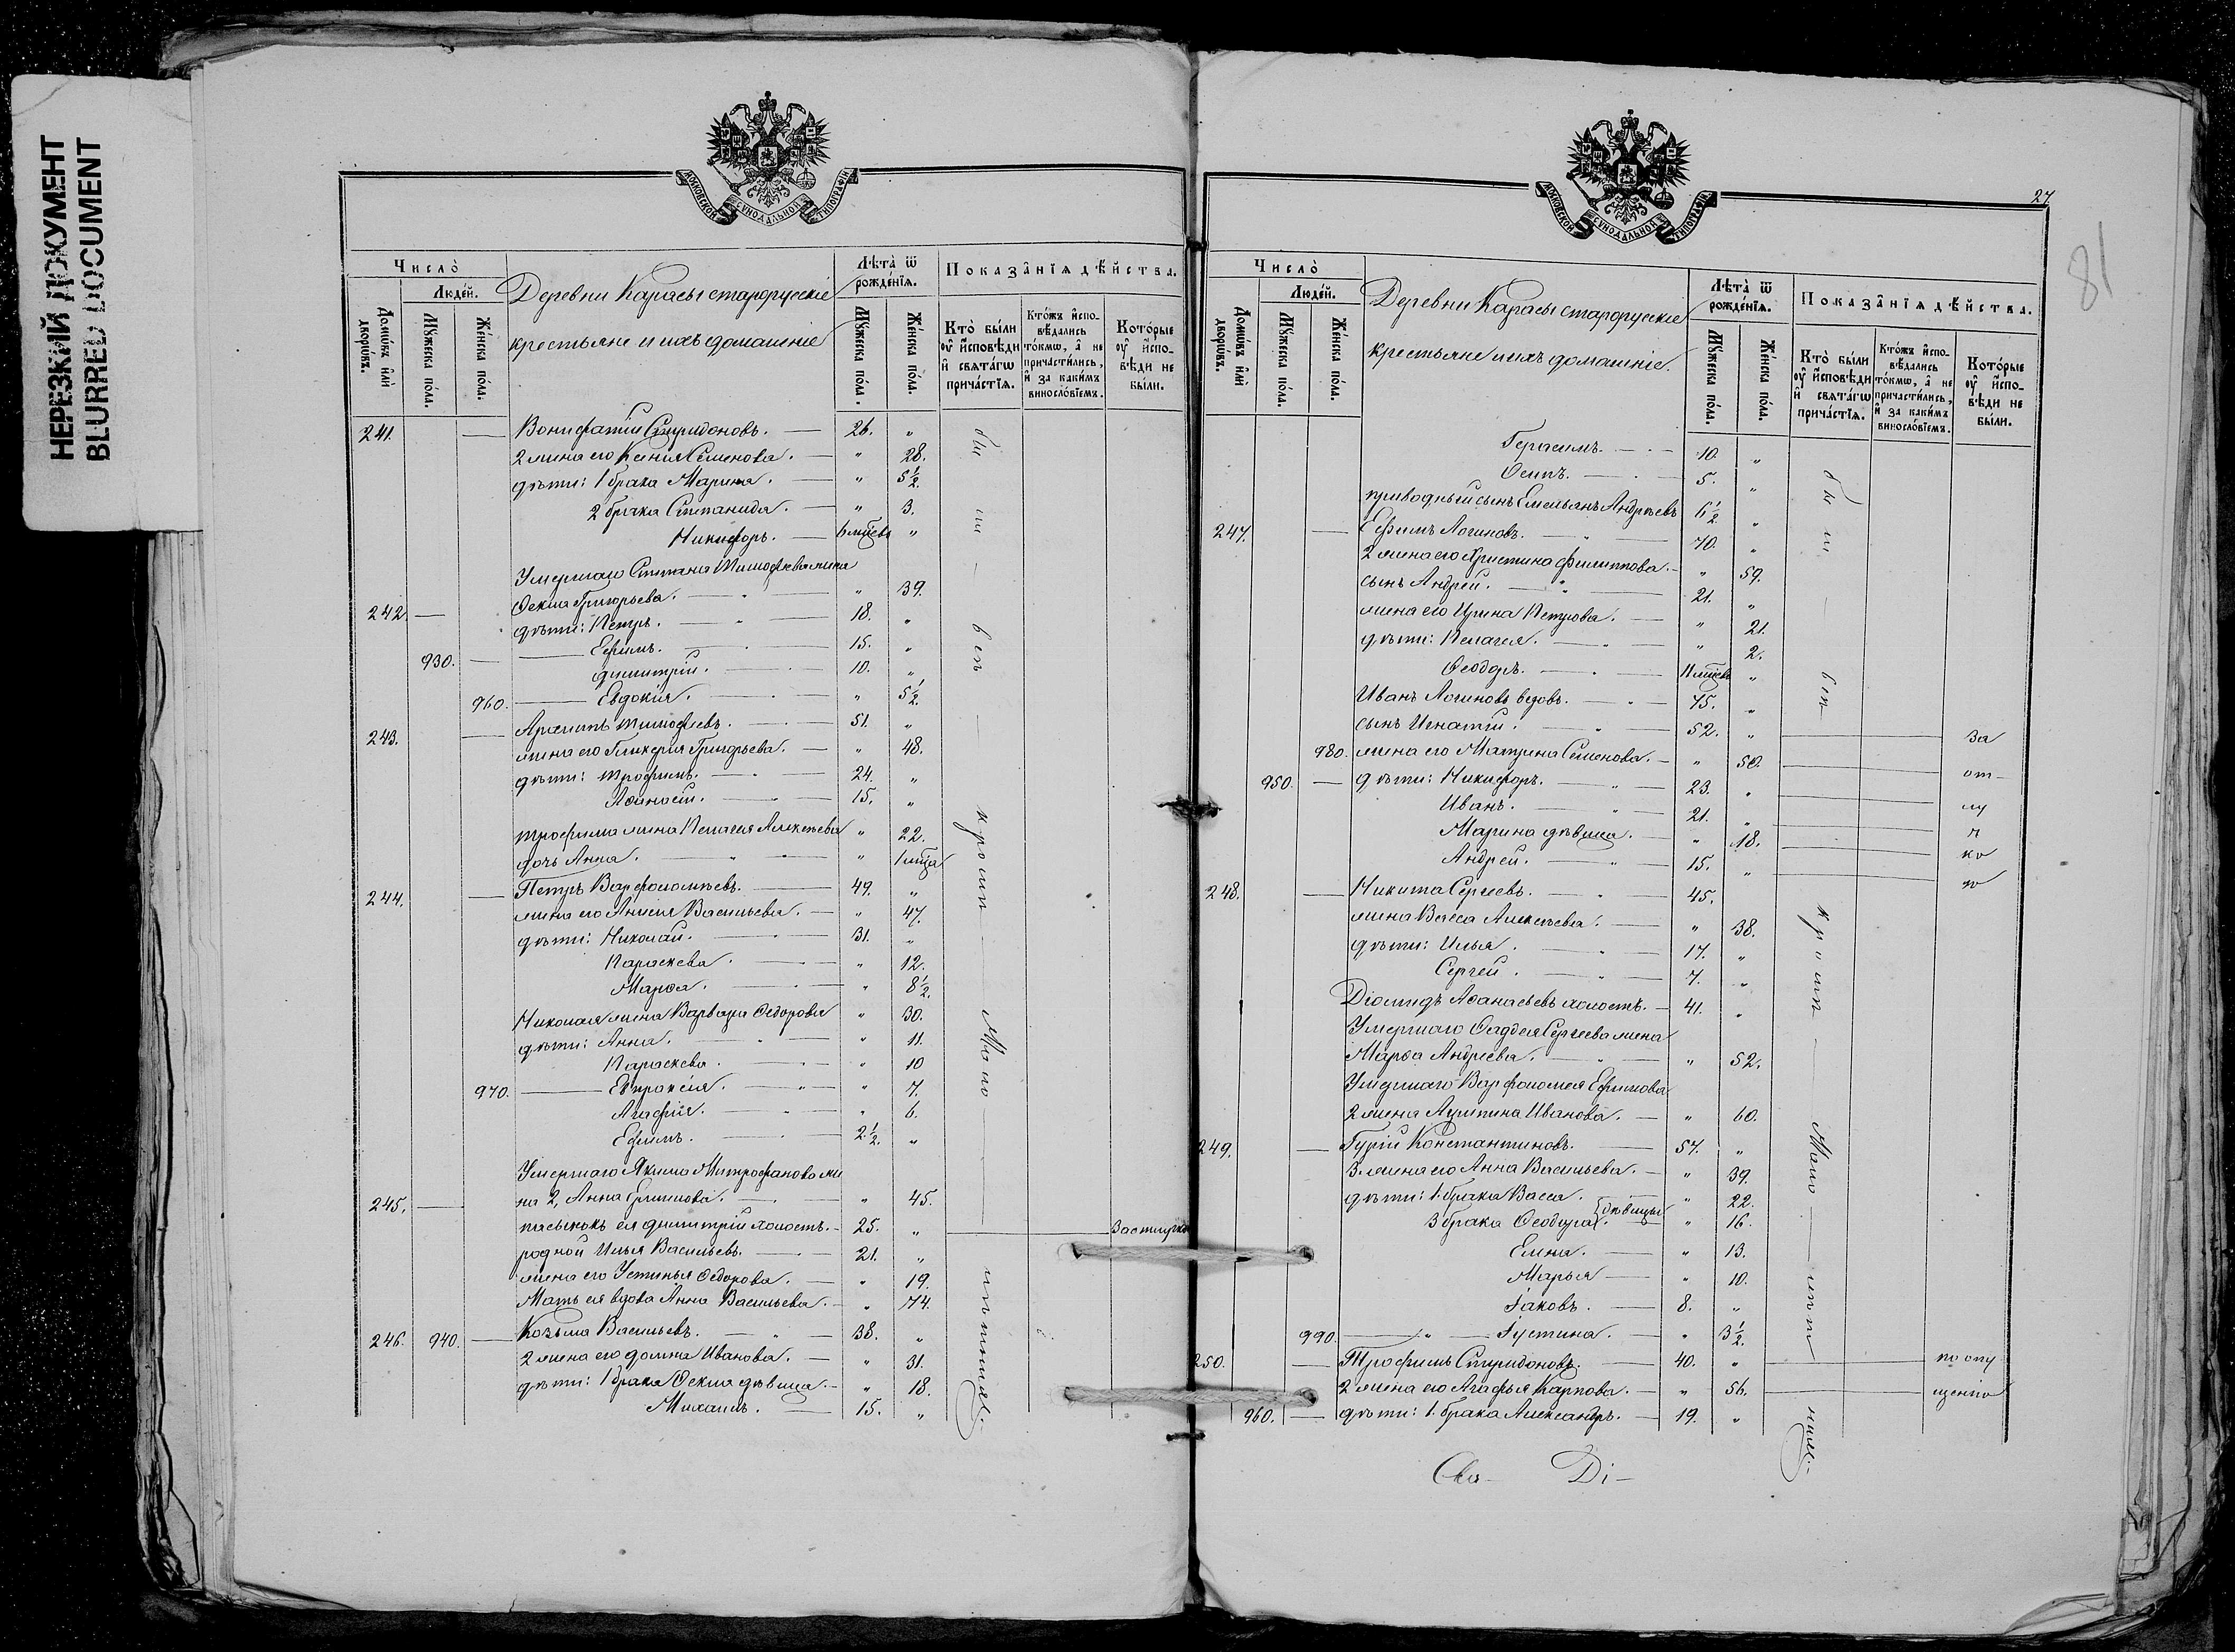 НЕРЕЗКИЙ ДОКУМЕНТ
BLURRED DOCUMENT
МОСКОВСКОЙ СѴНОДАЛЬНОЙ ТИПОГРАФІИ
Число̀
Люде́й.
Домѡ́въ и҆лѝ дворѡ́въ.
Мꙋ́жеска по́ла.
Же́нска по́ла.
Деревни Карасы старорусскіе
крестьяне и ихъ домашніе
Лѣ́та ѿ рожде́нїѧ.
Мꙋ́жеска по́ла.
Же́нска по́ла.
Показа̑нїѧ дѣ́йства.
Кто̀ бы́ли оу҆ и҆́сповѣди и҆ свѧта́гѡ прича́стїѧ.
Кто́жъ и҆спо-вѣ́дались то́кмѡ, а҆ не причасти́лись, и҆ за каки́мъ виносло́вїемъ.
Кото́рые оу҆ и҆́спо-вѣди не бы́ли.
241. — Вонифатій Спиридоновъ. — 26. „
2 жена его Ксенія Семенова. — „ 28.
дѣти: 1 брака Марина. — „ 5½.
2 брака Степанида. — „ 3.
Никифоръ. — 6 мѣсѣв „
Умершаго Степана Тимофѣева жена
242 — Ѳекла Григорьева. — „ 39.
дѣти: Петръ. — 18. „
930. — Ефимъ. — 15. „
Димитрій. — 10. „
960. — Евдокія. — „ 5½.
243. — Архипъ Тимофѣевъ. — 51. „
жена его Гликерія Григорьева. — „ 48.
дѣти: Трофимъ. — 24. „
— 15. „
Трофима жена Пелагея Алексѣева „ 22.
дочь Анна. — „ 1 мѣца
244. — Петръ Варфоломѣевъ. — 49. „
жена его Анисія Васильева. — „ 47.
дѣти: Николай. — 31. „
Параскева. — „ 12.
Марѳа. — „ 8½.
Николая жена Варвара Ѳедорова „ 30.
дѣти: Анна. — „ 11.
Параскева. — „ 10
970. — Евпраксія. — „ 7.
Агафія. — „ 6.
Ефимъ. — 2½. „
Умершаго Якима Митрофанова же
245. — на 2, Анна Ефимова. — „ 45.
пасынокъ ея Димитрій холостъ. — 25. „
родной Илья Васильевъ. — 21. „
жена его Устинья Ѳедорова. — „ 19.
Мать ея вдова Анна Васильева. — „ 74.
246. 940. — Козьма Васильевъ. — 38. „
2 жена его Домна Иванова. — „ 31.
дѣти: 1 брака Ѳекла дѣвица. — „ 18.
Михаилъ. — 15. „
бы ли — всѣ — кромѣ — мало — лѣтнихъ.
27
81
МОСКОВСКОЙ СѴНОДАЛЬНОЙ ТИПОГРАФІИ
Число̀
Люде́й.
Домѡ́въ и҆лѝ дворѡ́въ.
Мꙋ́жеска по́ла.
Же́нска по́ла.
Деревни Карасы старорусскіе
крестьяне и ихъ домашніе.
Лѣ́та ѿ рожде́нїѧ.
Мꙋ́жеска по́ла.
Же́нска по́ла.
Показа̑нїѧ дѣ́йства.
Кто̀ бы́ли оу҆ и҆́сповѣди и҆ свѧта́гѡ прича́стїѧ.
Кто́жъ и҆спо-вѣ́дались то́кмѡ, а҆ не причасти́лись, и҆ за каки́мъ виносло́вїемъ.
Кото́рые оу҆ и҆́спо-вѣди не бы́ли.
Герасимъ. — 10. „
Осипъ. — 5. „
приводный сынъ Емельянъ Андрѣевъ 6½ „
247. — Ефимъ Логиновъ. — 70. „
2 жена его Христина Филиппова. — „ 59.
сынъ Андрей. — 21. „
жена его Ирина Петрова. — „ 21.
дѣти: Пелагея. — „ 2.
Ѳеодоръ. — 11 мѣсѣвъ „
Иванъ Логиновъ вдовъ. — 75. „
сынъ Игнатій. — 52. „ — за
980. жена его Матрина Семенова. — „ 50. — от-
950. — дѣти: Никифоръ. — 23. „ — лу
Иванъ. — 21. „ — ч
Марина дѣвица. — „ 18. — ко
Андрей. — 15. „ — ю
248. — Никита Сергеевъ. — 45. „
жена Васса Алексѣева. — „ 38.
дѣти: Илья. — 17. „
Сергей. — 7. „
Діомидъ Аѳанасьевъ холостъ. — 41. „
Умершаго Ѳаддея Сергеева жена
Марѳа Андреева. — „ 52.
Умершаго Варфоломея Ефимова
2 жена Акилина Иванова. — „ 60.
249. — Гурій Константиновъ. — 57. „
3 жена его Анна Васильева. — „ 39.
дѣти: 1 брака Васса. — „ 22.
дѣвицы
3 брака Ѳеодора. — „ 16.
Елена. — „ 13.
Марья — „ 10.
Іаковъ. — 8. „
990. — Іустина. — „ 3½.
250. — Трофимъ Спиридоновъ. — 40. „ — по опу
2 жена его Агафья Карпова. — „ 56. — щенію
960. — дѣти: 1 брака Александръ. — 19. „
бы ли — всѣ — кромѣ — мало — лѣт — нихъ.
Свя- Ді-